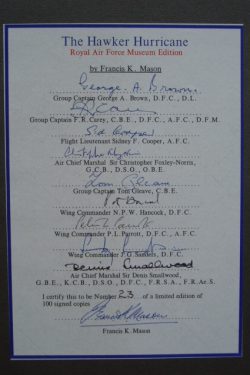 The Hawker Hurricane
Royal Air Force Museum Edition
by Francis K. Mason
George A. Brown
Group Captain George A. Brown, D.F.C., D.L.
Group Captain F.R. Carey, C.B.E., D.F.C., A.F.C., D.F.M.
Flight Lieutenant Sidney F. Cooper, A.F.C.
Air Chief Marshal Sir Christopher Foxley-Norris,
G.C.B., D.S.O., O.B.E.
Tom Gleave
Group Captain Tom Gleave, C.B.E.
Wing Commander N.P.W. Hancock, D.F.C.
Wing Commander P.L. Parrott, D.F.C., A.F.C.
Wing Commander J.G. Sanders, D.F.C.
Denis Smallwood
Air Chief Marshal Sir Denis Smallwood,
G.B.E., K.C.B., D.S.O., D.F.C., F.R.S.A., F.R.Ae.S.
I certify this to be Number 23 of a limited edition of
100 signed copies
Francis K Mason
Francis K. Mason